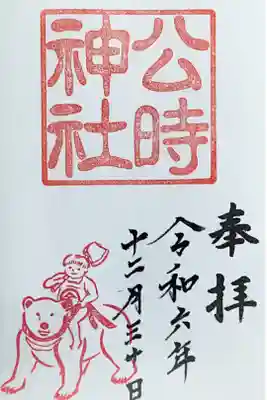 公時
神社
奉拝
令和六年
十二月三十日